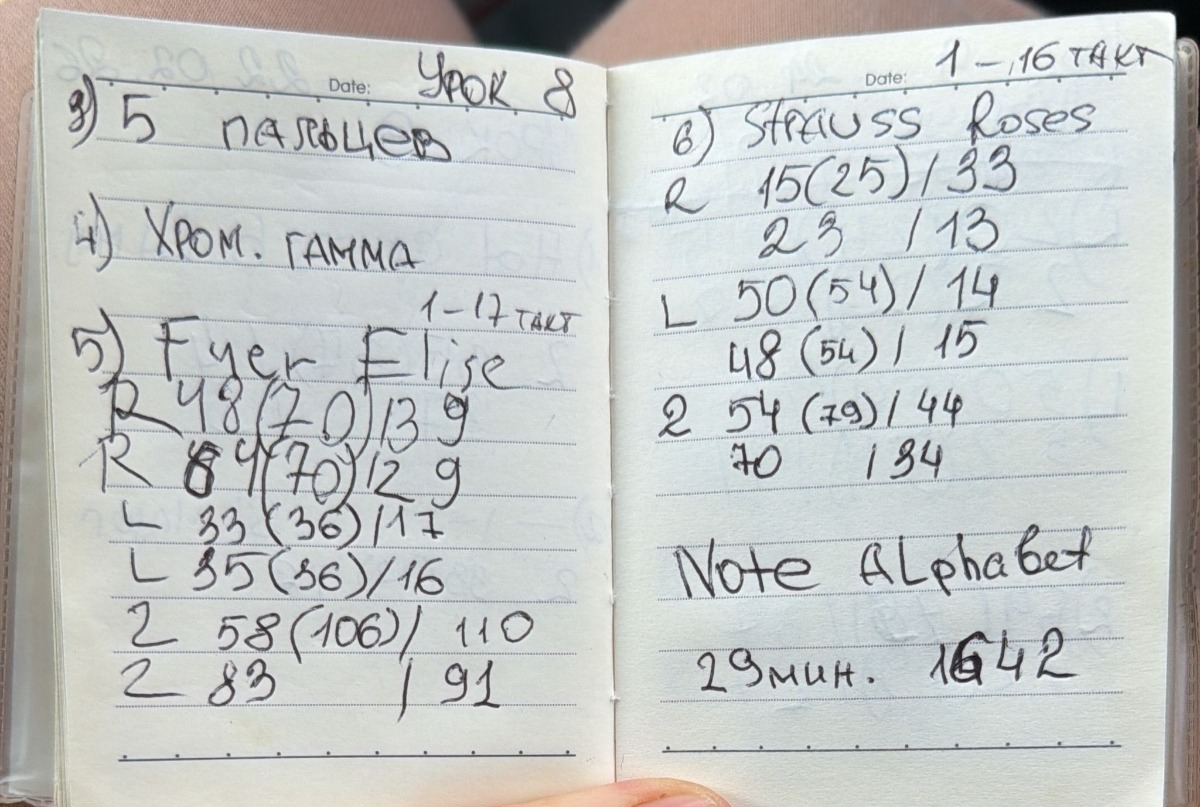 Date: Урок 8
3) 5 пальцев
4) Хром. гамма
1-17 такт
5) Fyer Elise
R 48(70)/39
R 64(70)/29
L 33(36)/17
L 35(36)/16
2 58(106)/110
2 83 / 91
Date: 1-16 такт
6) Strauss Roses
R 15(25)/33
23 /13
L 50(54)/14
48(54)/15
2 54(79)/44
70 /34
Note Alphabet
29 мин. 1642